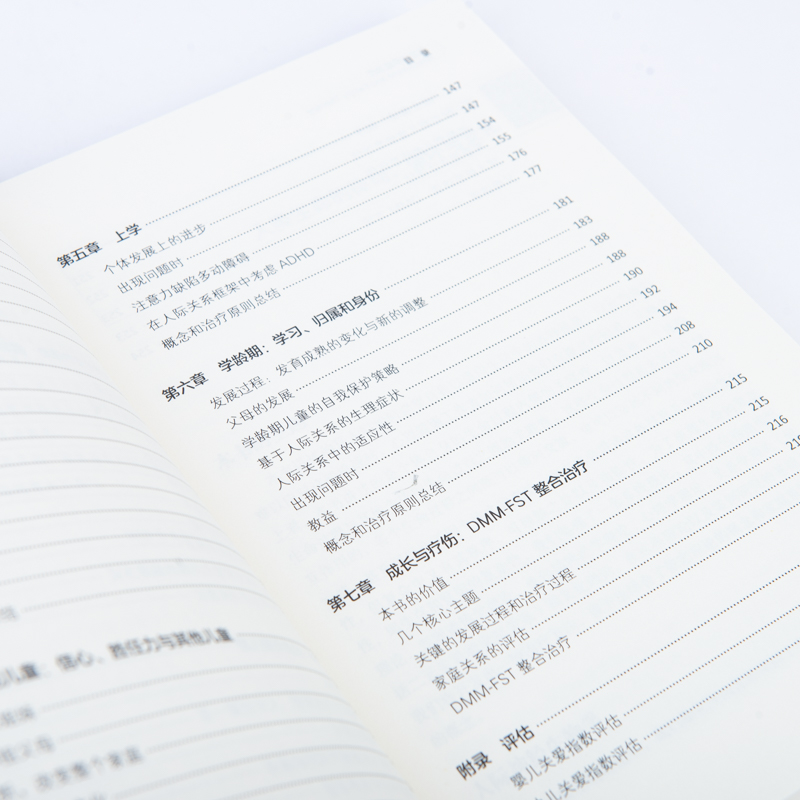 目 录
第五章 上学 147
个体发展上的进步 147
出现问题时 154
注意力缺陷多动障碍 155
在人际关系框架中考虑 ADHD 176
概念和治疗原则总结 177
第六章 学龄期：学习、归属和身份 181
发展过程：发育成熟的变化与新的调整 183
父母的发展 188
学龄期儿童的自我保护策略 188
基于人际关系的生理症状 190
人际关系中的适应性 192
出现问题时 194
教益 208
概念和治疗原则总结 210
第七章 成长与疗伤：DMM-FST 整合治疗 215
本书的价值 215
几个核心主题 216
关键的发展过程和治疗过程
家庭关系的评估
DMM-FST 整合治疗
附录 评估
婴儿关爱指数评估
儿关爱指数评估
儿童：信心、胜任力与其他儿童